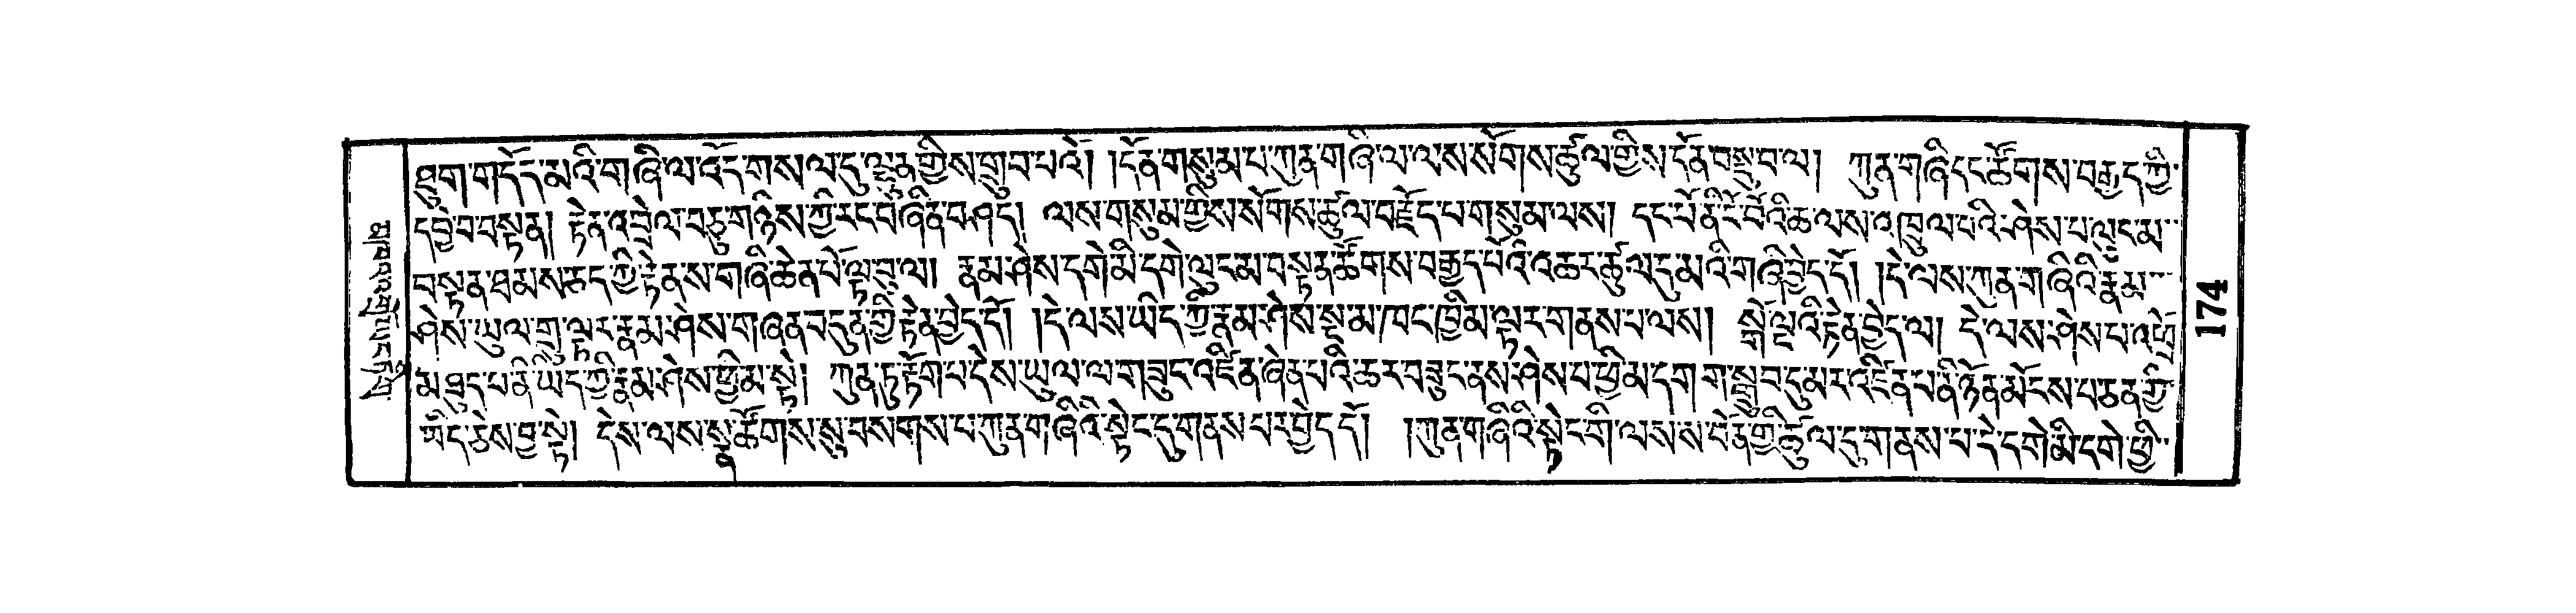 ཐུག་གདོད་མའི་གཞི་ལ་འོད་གསལ་དུ་ལྷུན་གྱིས་གྲུབ་པའོ། །དོན་གསུམ་པ་ཀུན་གཞི་ལ་ལས་སོགས་ཚུལ་གྱིས་དོན་བསྡུ་བ་ལ། ཀུན་གཞི་དང་ཚོགས་བརྒྱད་ཀྱི་
དབྱེ་བ་བསྟན། རྟེན་འབྲེལ་བཅུ་གཉིས་ཀྱི་རང་བཞིན་བཤད། ལས་གསུམ་གྱིས་སོགས་ཚུལ་བརྗོད་པ་གསུམ་ལས། དང་པོ་ནི་ངོ་བོའི་ཆ་ལས་འཁྲུལ་པའི་ཤེས་པ་ལུང་མ་
བསྟན་ཐམས་ཅད་ཀྱི་རྟེན་ས་གཞི་ཆེན་པོ་ལྟ་བུ་ལ། རྣམ་ཤེས་དགེ་མི་དགེ་ལུང་མ་བསྟན་ཚོགས་བརྒྱད་པོའི་འཆར་ཚུལ་དུ་མའི་གཞི་བྱེད་དོ། །དེ་ལས་ཀུན་གཞིའི་རྣམ་
ཤེས་ཡུལ་གྲུ་ལྟར་རྣམ་ཤེས་གཞན་བདུན་གྱི་རྟེན་བྱེད་དོ། །དེ་ལས་ཡིད་ཀྱི་རྣམ་ཤེས་སྡུམ་ཁང་ཁྱིམ་ལྟར་གནས་པ་ལས། སྒོ་ལྔའི་རྟེན་བྱེད་ལ། དེ་ལས་ཤེས་པ་འཕྲོ་
མཐུད་པ་ནི་ཡིད་ཀྱི་རྣམ་ཤེས་ཕྱི་མ་སྟེ། ཀུན་ཏུ་རྟོག་པ་དེས་ཡུལ་ལ་གཟུང་འཛིན་ཞེན་པའི་ཆར་བཟུང་ནས་ཤེས་པ་ཕྱི་མ་དགག་སྒྲུབ་དུ་མར་འཛིན་པ་ནི་ཉོན་མོངས་པ་ཅན་གྱི་
ཡིད་ཅེས་བྱ་སྟེ། དེས་ལས་སྣ་ཚོགས་སུ་བསགས་པ་ཀུན་གཞིའི་སྟེང་དུ་གནས་པར་བྱེད་དོ། །ཀུན་གཞིའི་སྟེང་གི་ལས་ས་བོན་གྱི་ཚུལ་དུ་གནས་པ་དེ་དགེ་མི་དགེ་ཕྱི་
174